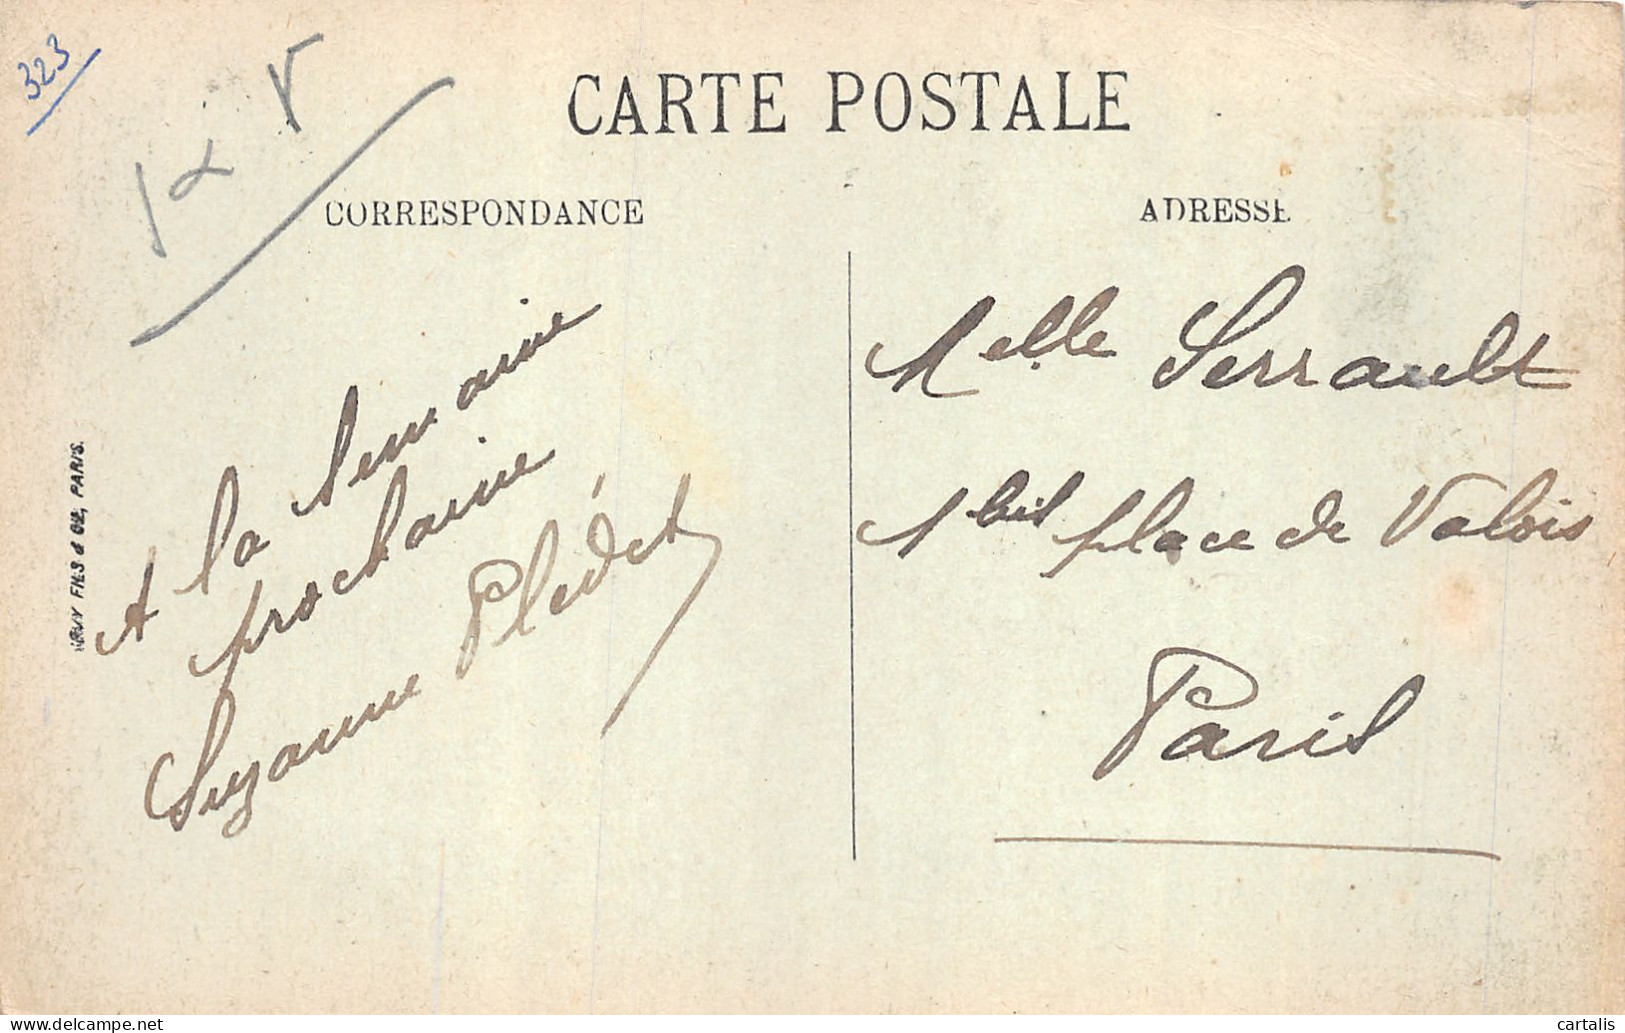 323
CARTE POSTALE
CORRESPONDANCE
ADRESSE
A la Semaine
prochaine
Suzanne Plédet
Melle Serrault
1 bis place de Valois
Paris
FILS & CIE, PARIS.
delcampe.net
cartalis